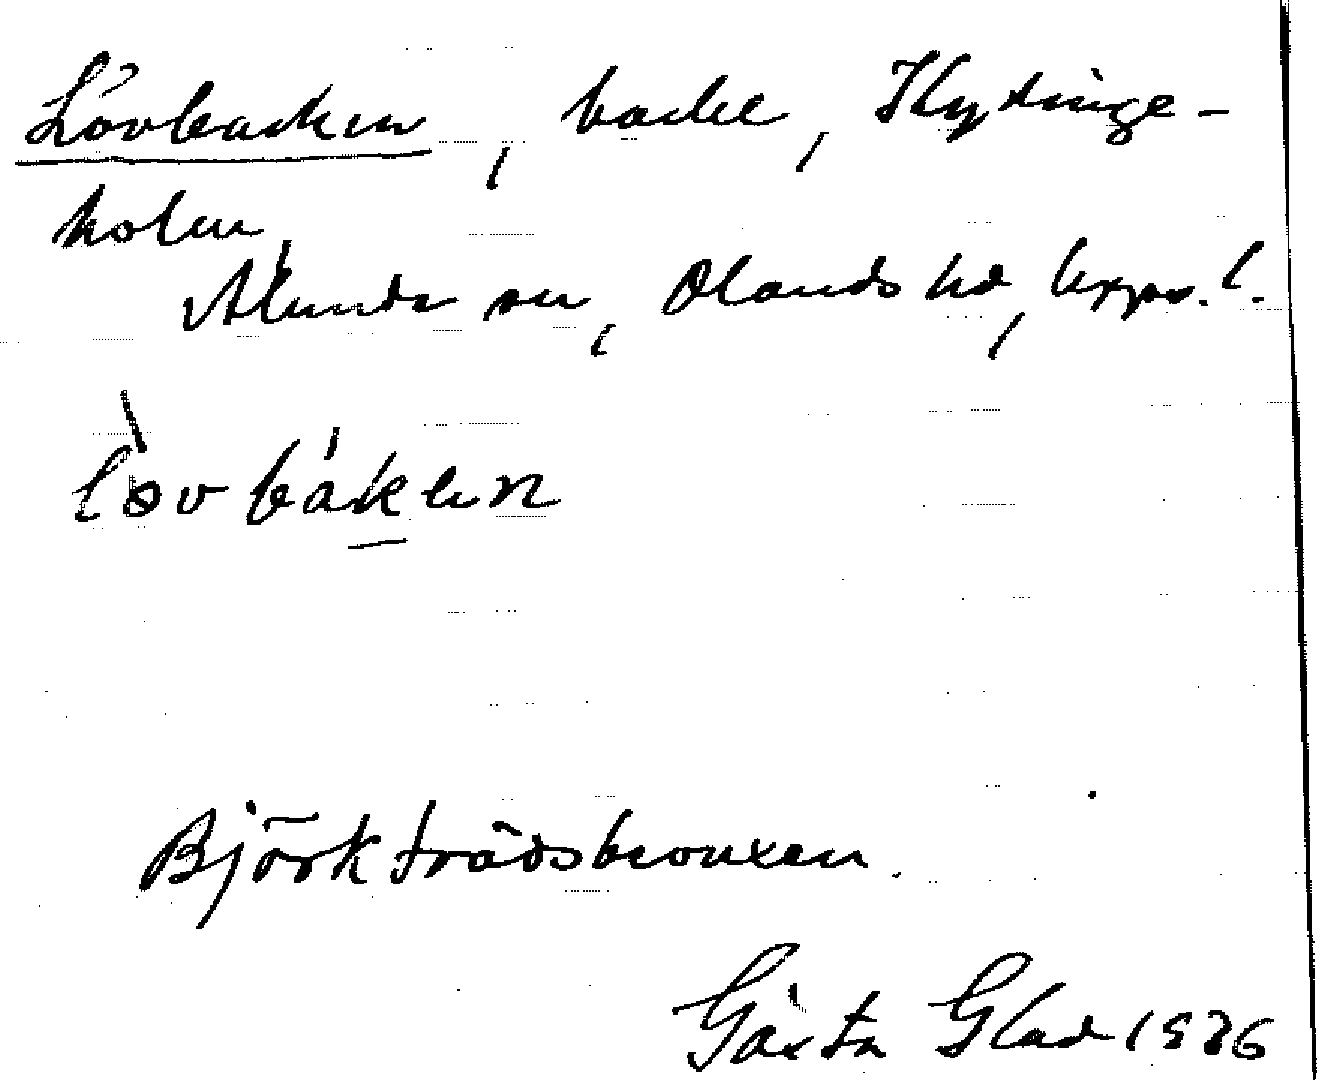 Lövbacken, backe, Hyttinge-
holm,
Alunda sn, Olands hd, Upps. l.
lövbàken
Björkträdsbevuxen.
Gösta Glad 1936